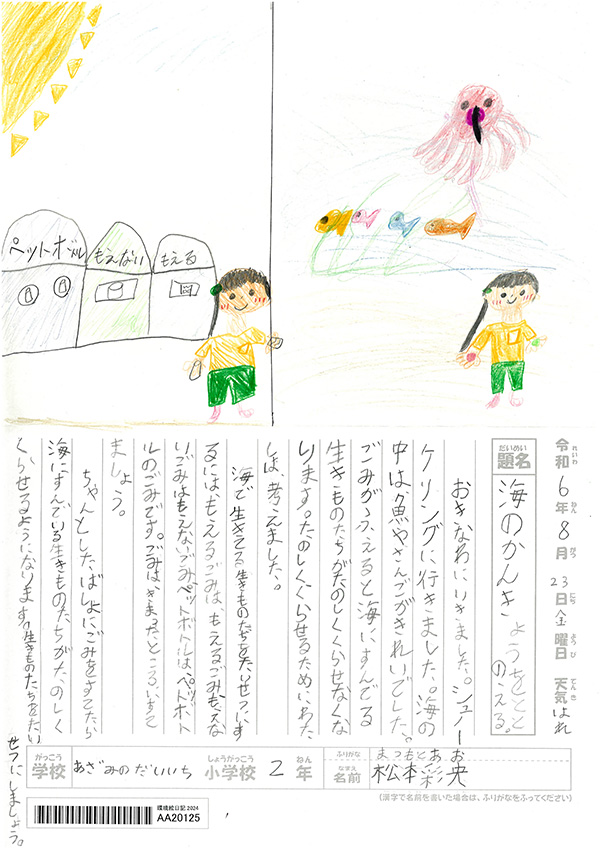 ペットボトル
もえない
もえる
令和6年8月23日金曜日 天気はれ
れいわ ねん がつ にち ようび てんき
だいめい
題名
海のかんきょうをとと
のえる。
おきなわにいきました。シュノー
ケリングに行きました。海の
中は魚やさんごがきれいでした。
ごみがふえると海にすんでる
生きものたちがたのしくくらせなくな
ります。たのしくくらせるためにわた
しは、考えました。
海で生きてる生きものたちをたいせつにす
るにはもえるごみは、もえるごみ、もえな
いごみはもえないごみペットボトルはペットボト
ルのごみです。ごみは、きまったところにすて
ましょう。
ちゃんとした、ばしょにごみをすてたら
海にすんでいる生きものたちがたのしく
くらせるようになります。生きものたちをたい
せつにしましょう。
がっこう
学校
あざみのだいいち
しょうがっこう
小学校
2
ねん
年
ふりがな
まつもとあお
なまえ
名前
松本彩央
(漢字で名前を書いた場合は、ふりがなをふってください)
環境絵日記2024
AA20125